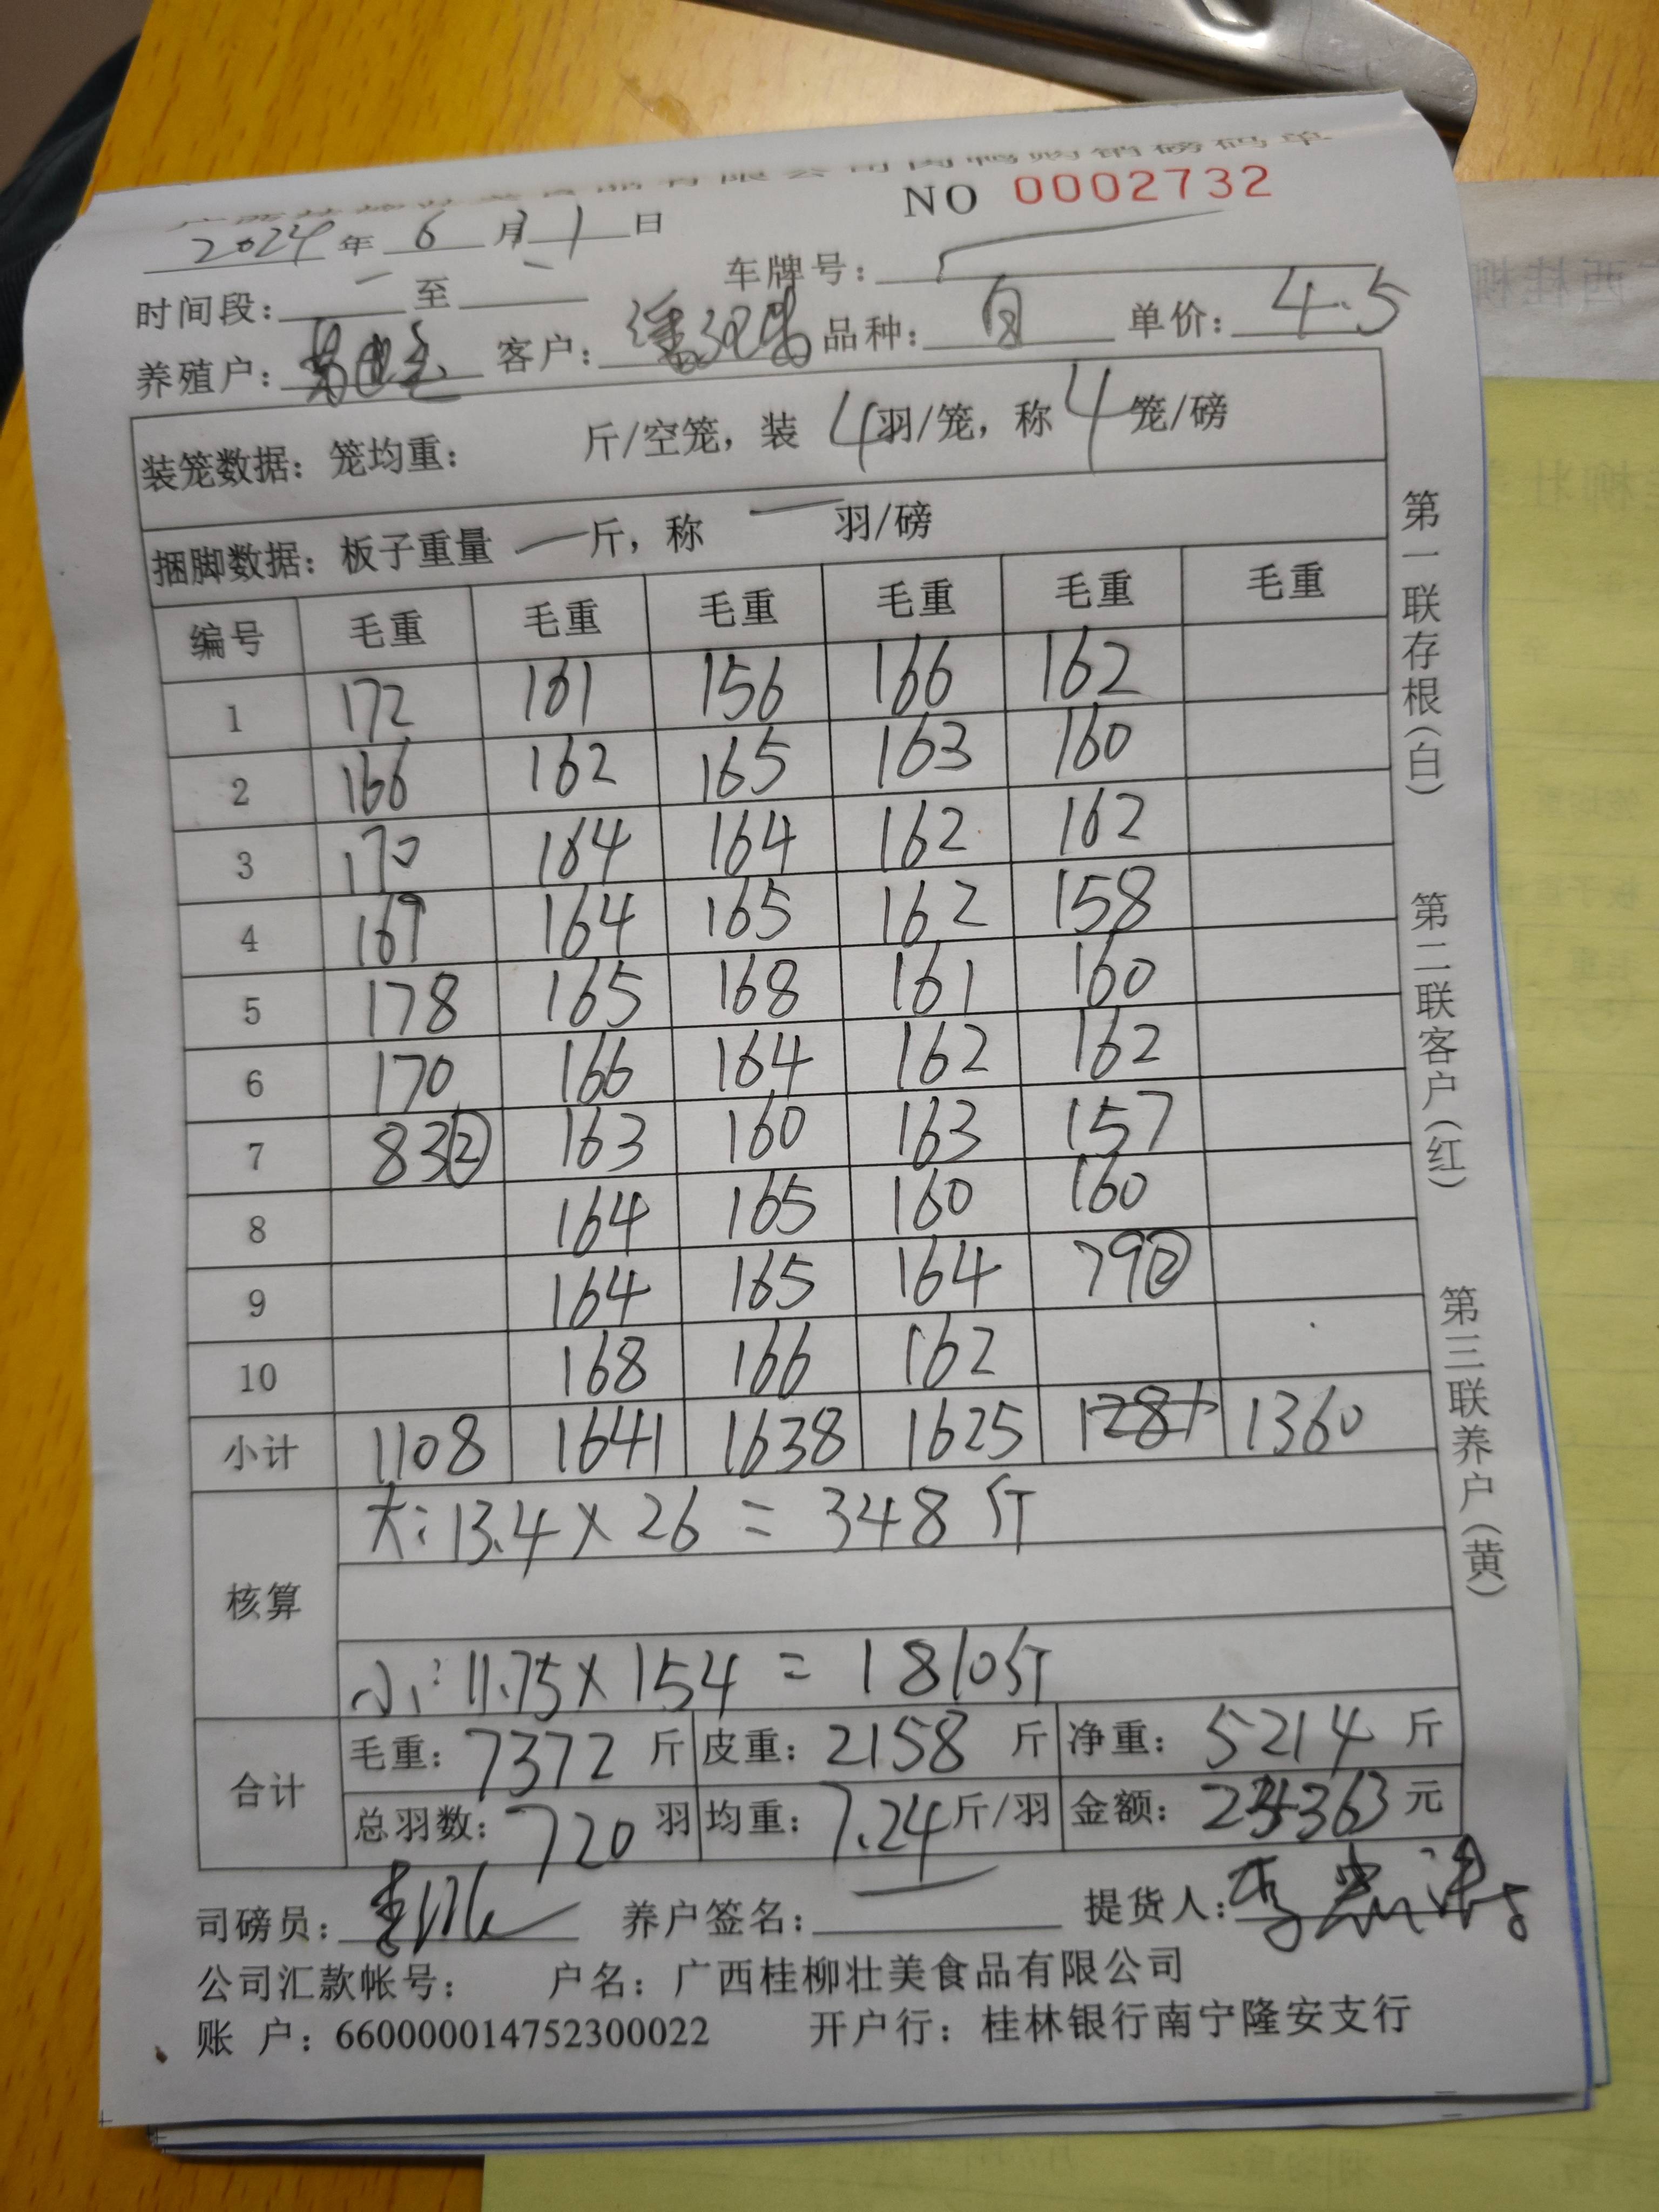 广西桂柳壮美食品有限公司肉鸭购销磅码单
NO 0002732
2024年 6 月 1 日
时间段： — 至 — 车牌号：
养殖户： 客户： 品种： 单价： 4.5
装笼数据：笼均重： 斤/空笼，装 4 羽/笼，称 4 笼/磅
捆脚数据：板子重量 — 斤，称 — 羽/磅
编号 毛重 毛重 毛重 毛重 毛重 毛重
1 172 161 156 166 162
2 166 162 165 163 160
3 170 164 164 162 162
4 169 164 165 162 158
5 178 165 168 161 160
6 170 166 164 162 162
7 83② 163 160 163 157
8 164 165 160 160
9 164 165 164 79②
10 168 166 162
小计 1108 1641 1638 1625 1281 1360
核算
大：13.4×26 = 348斤
小：11.75×154 = 1810斤
合计
毛重：7372 斤 皮重：2158 斤 净重：5214 斤
总羽数：720 羽 均重：7.24 斤/羽 金额： 元
司磅员： 养户签名： 提货人：
公司汇款帐号： 户名：广西桂柳壮美食品有限公司
账 户：660000014752300022 开户行：桂林银行南宁隆安支行
第一联存根（白）
第二联客户（红）
第三联养户（黄）